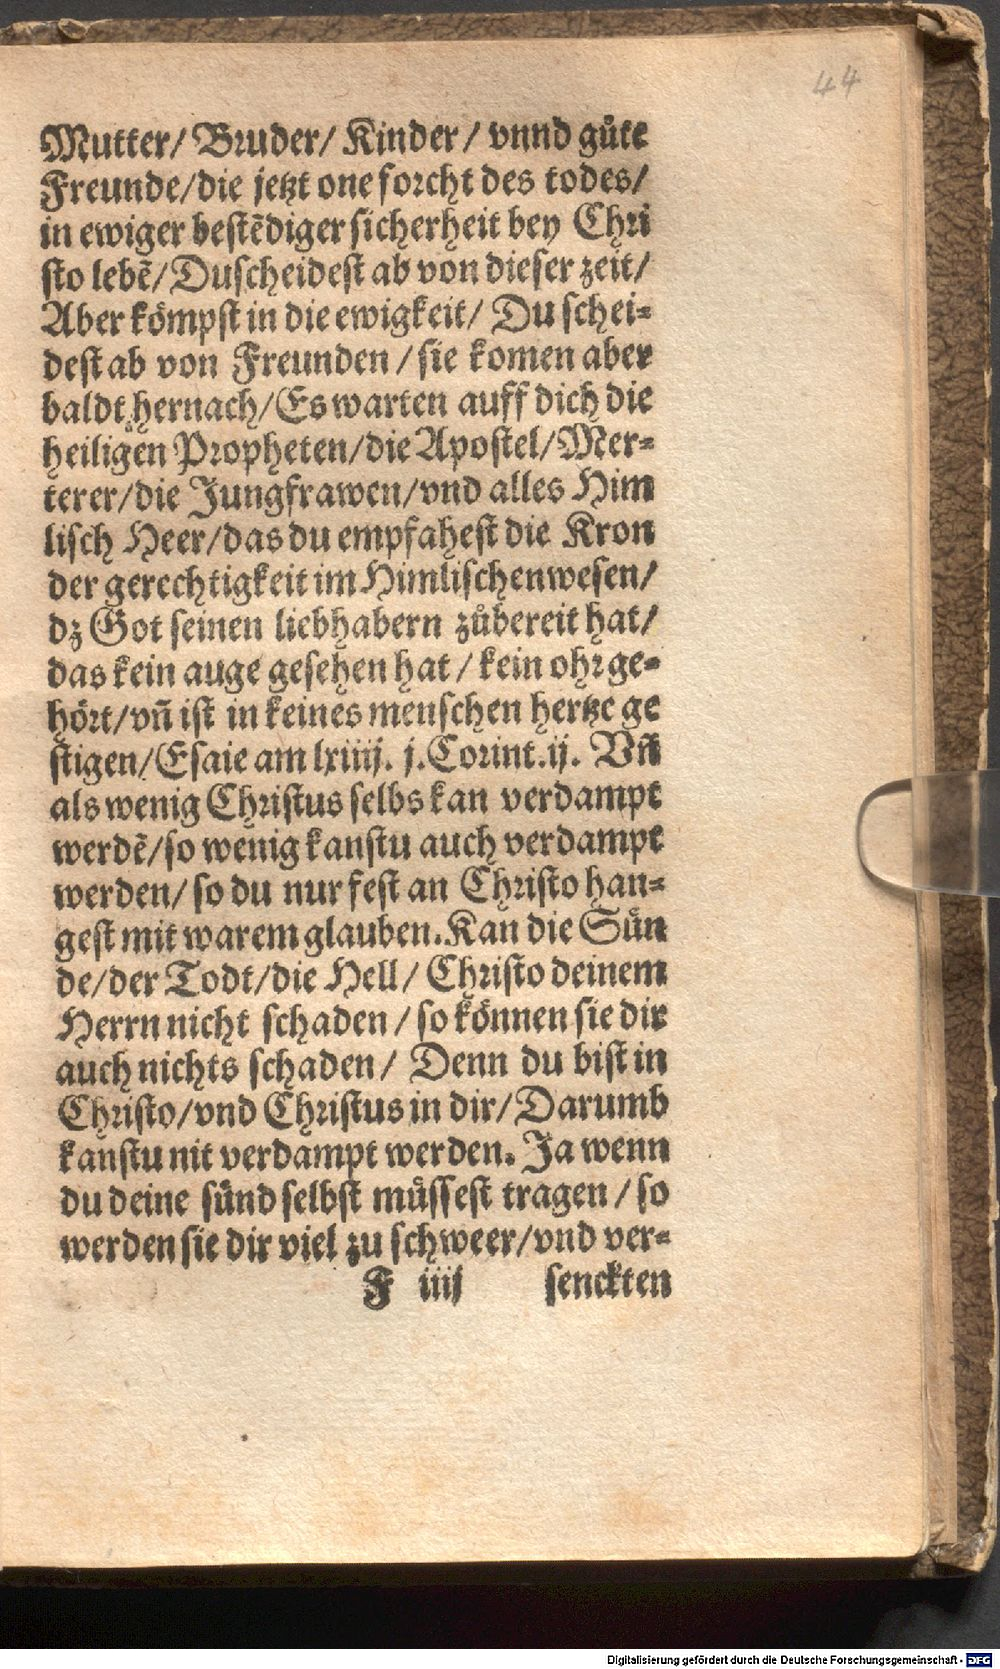 44
Mutter/ Bruder/ Kinder/ vnnd gůte
Freunde/die jetzt one forcht des todes/
in ewiger bestẽdiger sicherheit bey Chri
sto lebẽ/Du scheidest ab von dieser zeit/
Aber kömpst in die ewigkeit/ Du schei⸗
dest ab von Freunden/sie komen aber
baldt hernach/Es warten auff dich die
heiligen Propheten/die Apostel/Mer⸗
terer/die Jungfrawen/vnd alles Him
lisch Heer/das du empfahest die Kron
der gerechtigkeit im Himlischen wesen/
dz Got seinen liebhabern zůbereit hat/
das kein auge gesehen hat/kein ohr ge⸗
hört/vñ ist in keines menschen hertze ge
stigen/Esaie am lxiiij. j.Corint.ij. Vñ
als wenig Christus selbs kan verdampt
werdẽ/so wenig kanstu auch verdampt
werden/so du nur fest an Christo han⸗
gest mit warem glauben.Kan die Sün
de/der Todt/die Hell/ Christo deinem
Herrn nicht schaden/so können sie dir
auch nichts schaden/ Denn du bist in
Christo/vnd Christus in dir/Darumb
kanstu nit verdampt werden. Ja wenn
du deine sünd selbst müssest tragen/so
werden sie dir viel zu schweer/vnd ver⸗
F iiij senckten
Digitalisierung gefördert durch die Deutsche Forschungsgemeinschaft - DFG